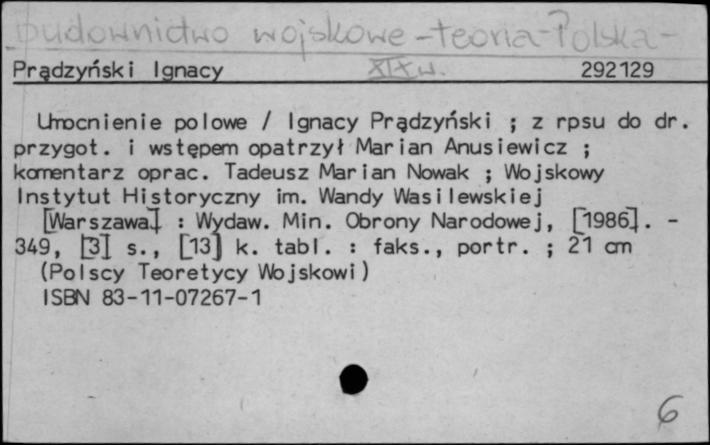 budownictwo wojskowe - teoria - Polska -
XIX w.
Prądzyński Ignacy 292129
Umocnienie polowe / Ignacy Prądzyński ; z rpsu do dr.
przygot. i wstępem opatrzył Marian Anusiewicz ;
komentarz oprac. Tadeusz Marian Nowak ; Wojskowy
Instytut Historyczny im. Wandy Wasilewskiej
[Warszawa] : Wydaw. Min. Obrony Narodowej, [1986]. -
349, [3] s., [13] k. tabl. : faks., portr. ; 21 cm
(Polscy Teoretycy Wojskowi)
ISBN 83-11-07267-1
6